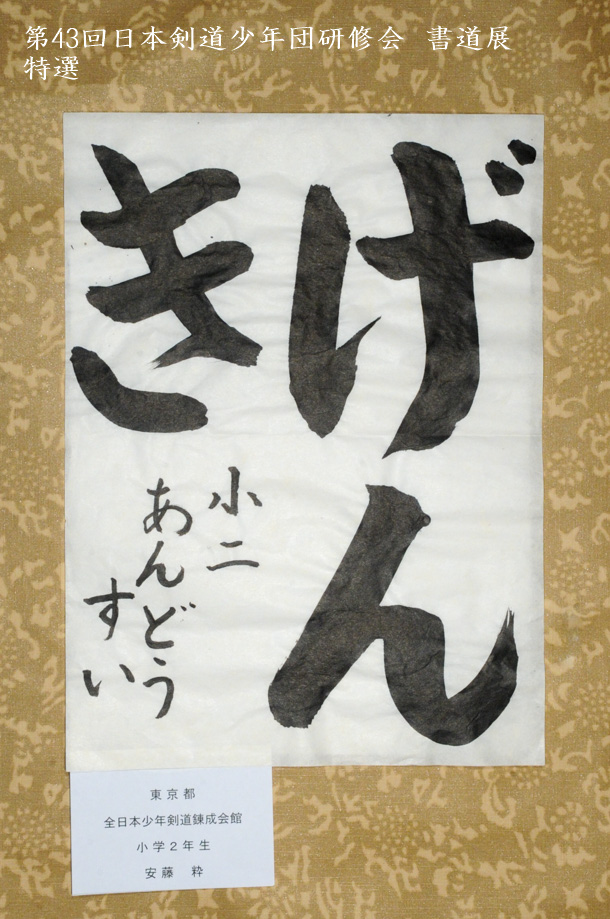 第43回日本剣道少年団研修会 書道展
特選
げん
き
小二
あんどう
すい
東京都
全日本少年剣道錬成会館
小学2年生
安藤 粋